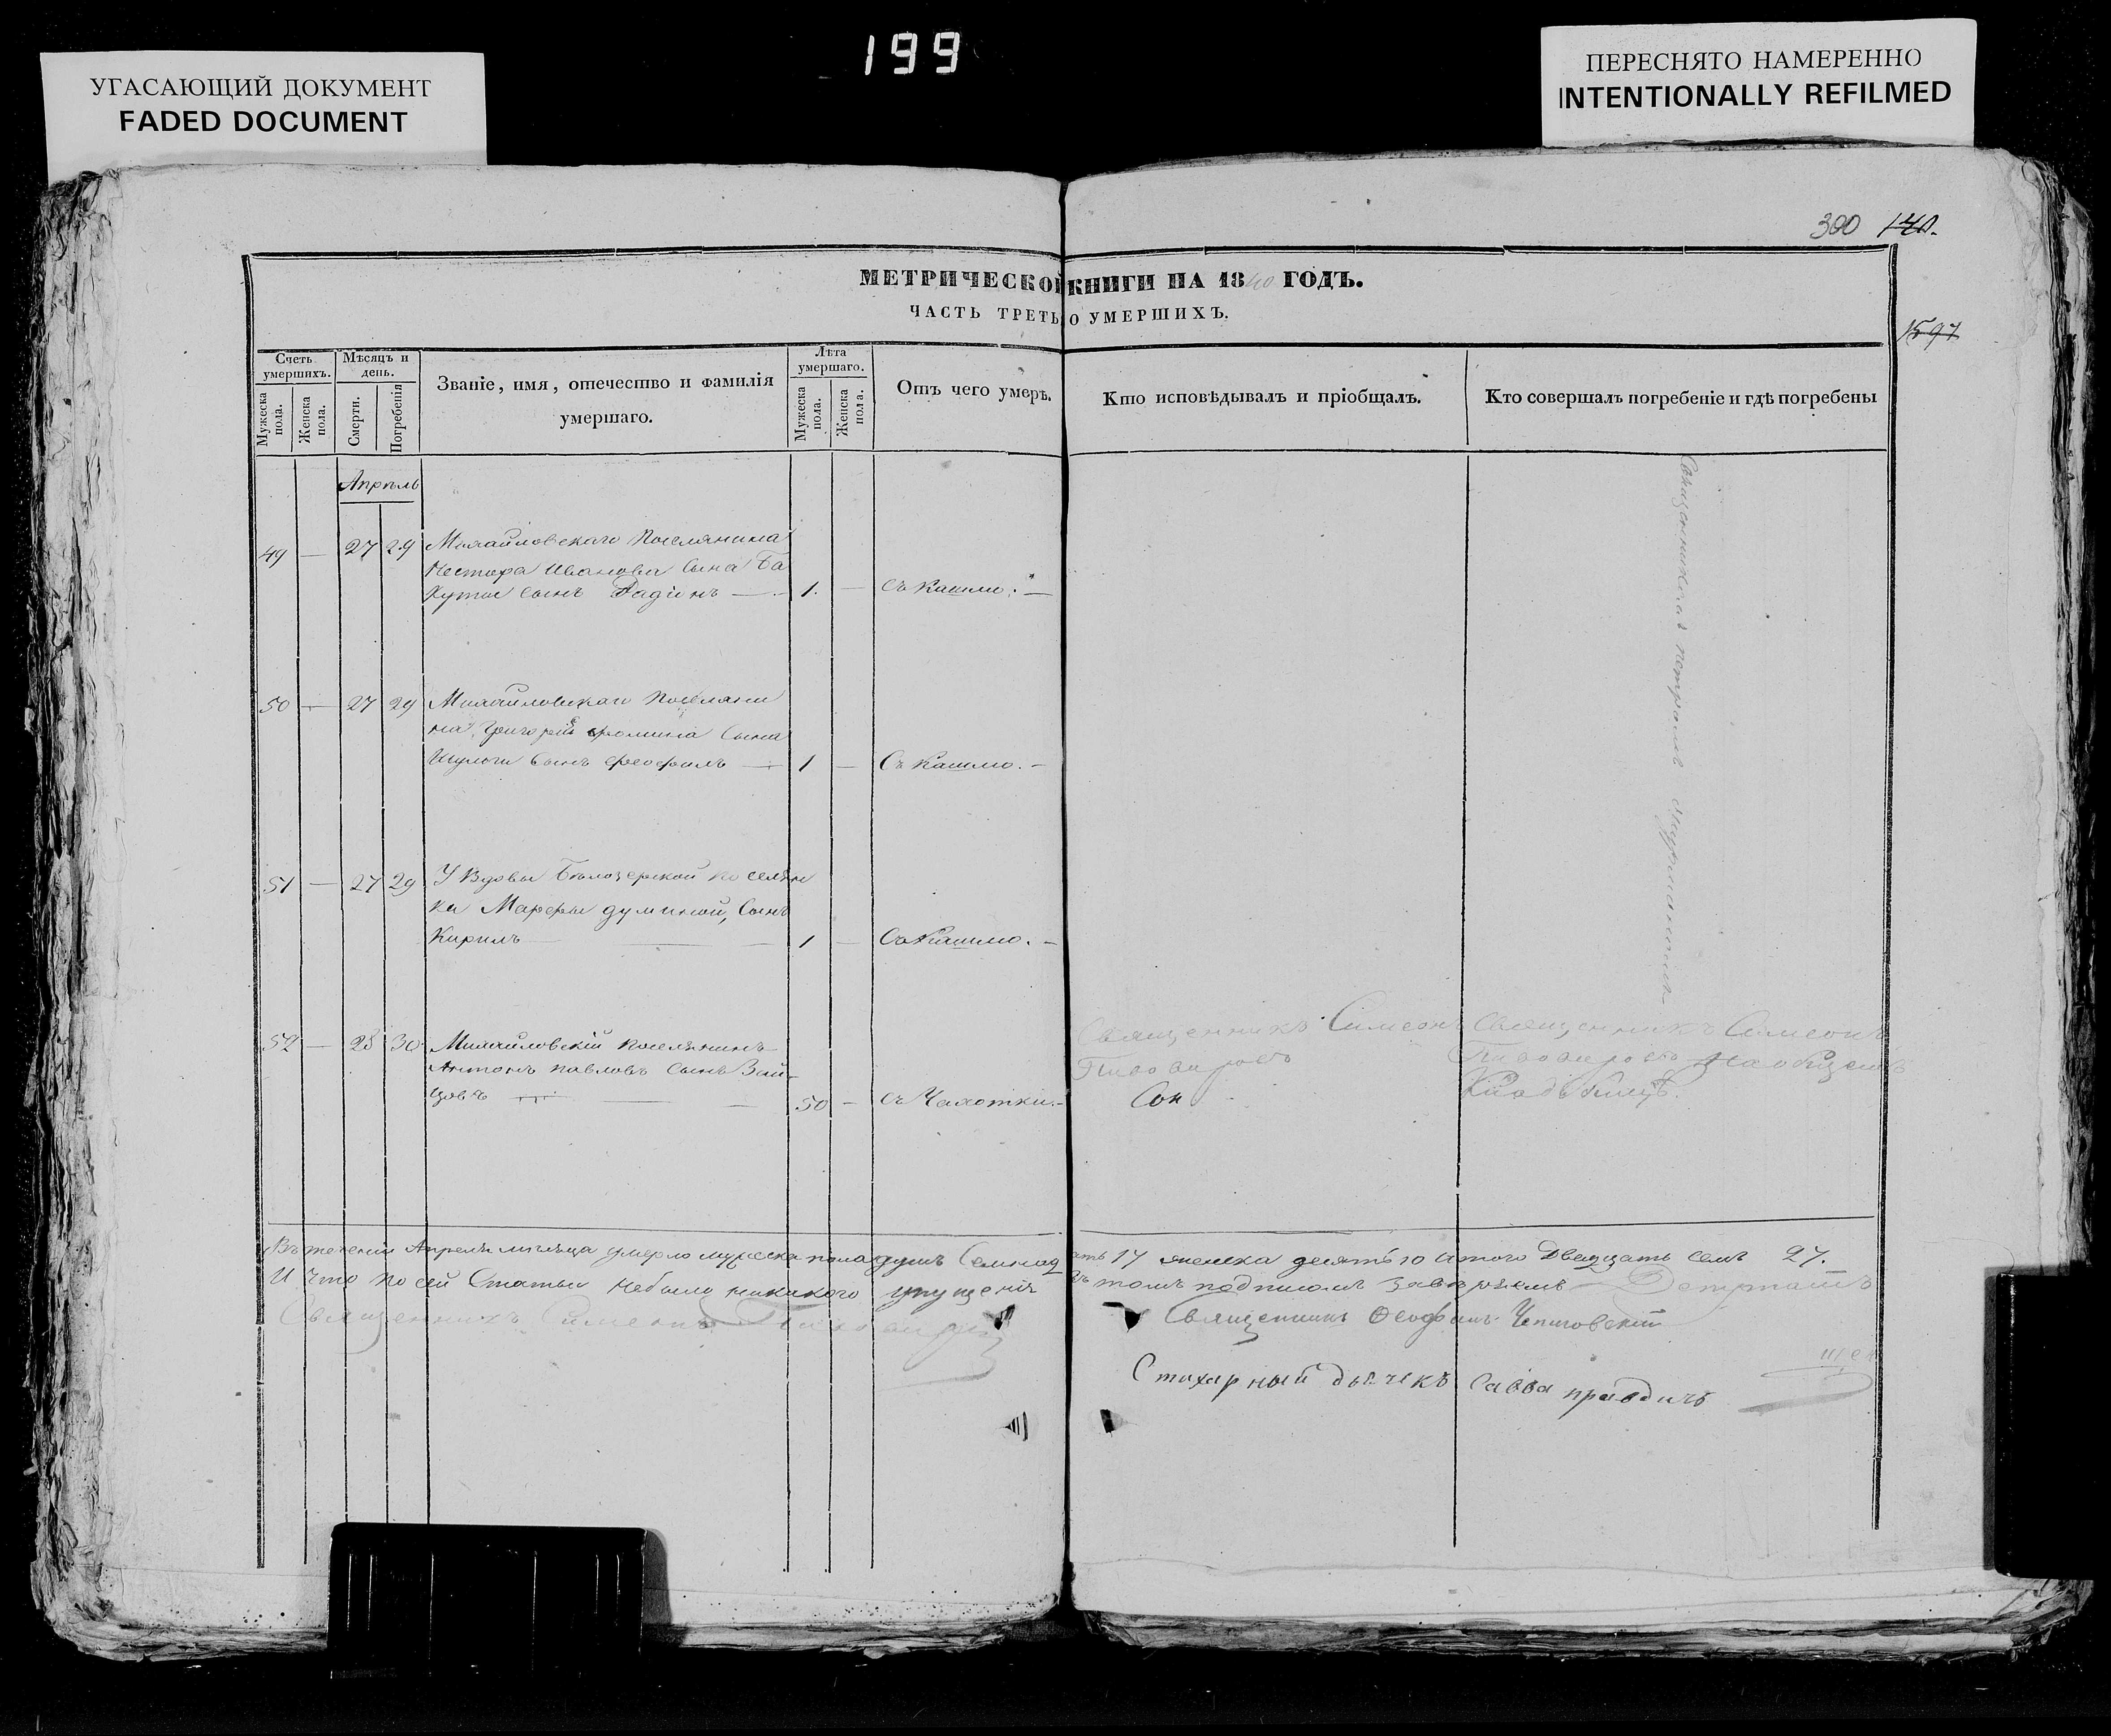 199
УГАСАЮЩИЙ ДОКУМЕНТ
FADED DOCUMENT
ПЕРЕСНЯТО НАМЕРЕННО
INTENTIONALLY REFILMED
300 140.
МЕТРИЧЕСКОЙ КНИГИ НА 1840 ГОДЪ.
ЧАСТЬ ТРЕТЬ О УМЕРШИХЪ.
1597
Счетъ умершихъ.
Мужеска пола.
Женска пола.
Мѣсяцъ и день.
Смерти.
Погребенія
Званіе, имя, отечество и фамилія
умершаго.
Лѣта умершаго.
Мужеска пола.
Женска пола.
Отъ чего умеръ.
Кто исповѣдывалъ и пріобщалъ.
Кто совершалъ погребеніе и гдѣ погребены
Апрѣль
49 — 27 29 Михайловскаго Поселянина
Нестора Иванова Сына Ба
хуты Сынъ Радіонъ — 1. — Съ Кашлю. —
50 — 27 29 Михайловскаго Поселяни
на Григорія Фомина Сына
Сынъ Феофилъ — 1 — Съ Кашлю. —
51 — 27 29 У Вдовы Бѣлозерской Поселян
ки Марфы Думиной, Сынъ
Кирилъ — 1 — Съ Кашлю. —
52 — 28 30 Михайловскій Поселянинъ
Антонъ Павловъ Сынъ Зай-
цовъ — 50 — Съ Чахотки. —
Священникъ Симеонъ
Пивоваровъ
Священникъ Симеонъ
Пивоваровъ на общемъ
Кладбищѣ.
Въ теченіи Апреля мѣсяца умерло мужеска пола душъ Семнадцать 17 женска десять 10 итого Двадцать семь 27.
И что по сей Статьи небыло никакого упущенія въ томъ подписомъ
Священникъ Симеонъ
Священникъ Феофанъ
Стихарный дьячекъ Савва